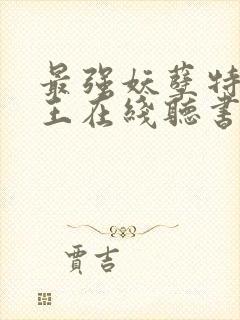 最强妖孽特
王在线听书
贾吉